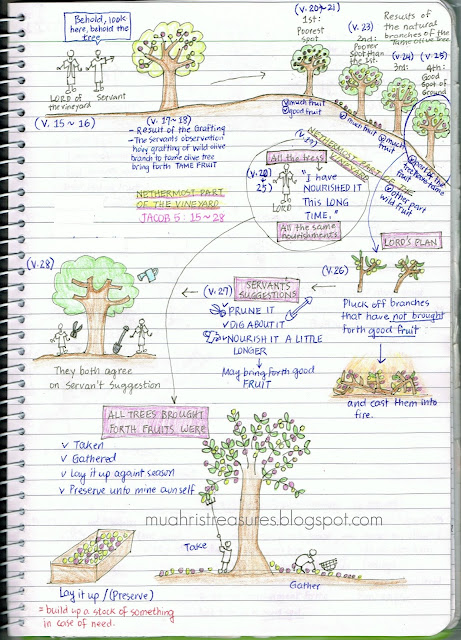 Behold, look
here, behold the
tree
LORD of
the vineyard
Servant
(v. 15~16)
(v. 17~18)
- Result of the Grafting
- The servants observation
how grafting of wild olive
branch to tame olive tree
bring forth TAME FRUIT
(v. 20~21)
1st:
Poorest
Spot
(v. 23)
2nd:
Poorer
Spot than
the 1st.
Results of
the natural
branches of
the tame olive tree
(v. 24)
3rd:
(v. 25)
4th:
Good
Spot of
Ground
much fruit
good fruit
much fruit
much fruit
part of the
tree bore tame
fruit
other part
wild fruit
NETHERMOST PART OF THE
VINEYARD
NETHERMOST PART
OF THE VINEYARD
JACOB 5: 15~28
(v. 19)
All the trees
(v. 20)
25)
LORD
"I have
NOURISHED IT
THIS LONG
TIME."
All the same
nourishments
LORD'S PLAN
(v. 26)
Pluck off branches
that have not brought
forth good fruit
and cast them into
fire.
SERVANT'S
SUGGESTIONS
(v. 27)
PRUNE IT
DIG ABOUT IT
NOURISH IT A LITTLE
LONGER
May bring forth good
FRUIT
(v. 28)
They both agree
on Servan't Suggestion
ALL TREES BROUGHT
FORTH FRUITS WERE
v Taken
v Gathered
v Lay it up againt season
v Preserve unto mine own self
muahristreasures.blogspot.com
Take
Gather
Lay it up / (Preserve)
= build up a stock of something
in case of need.